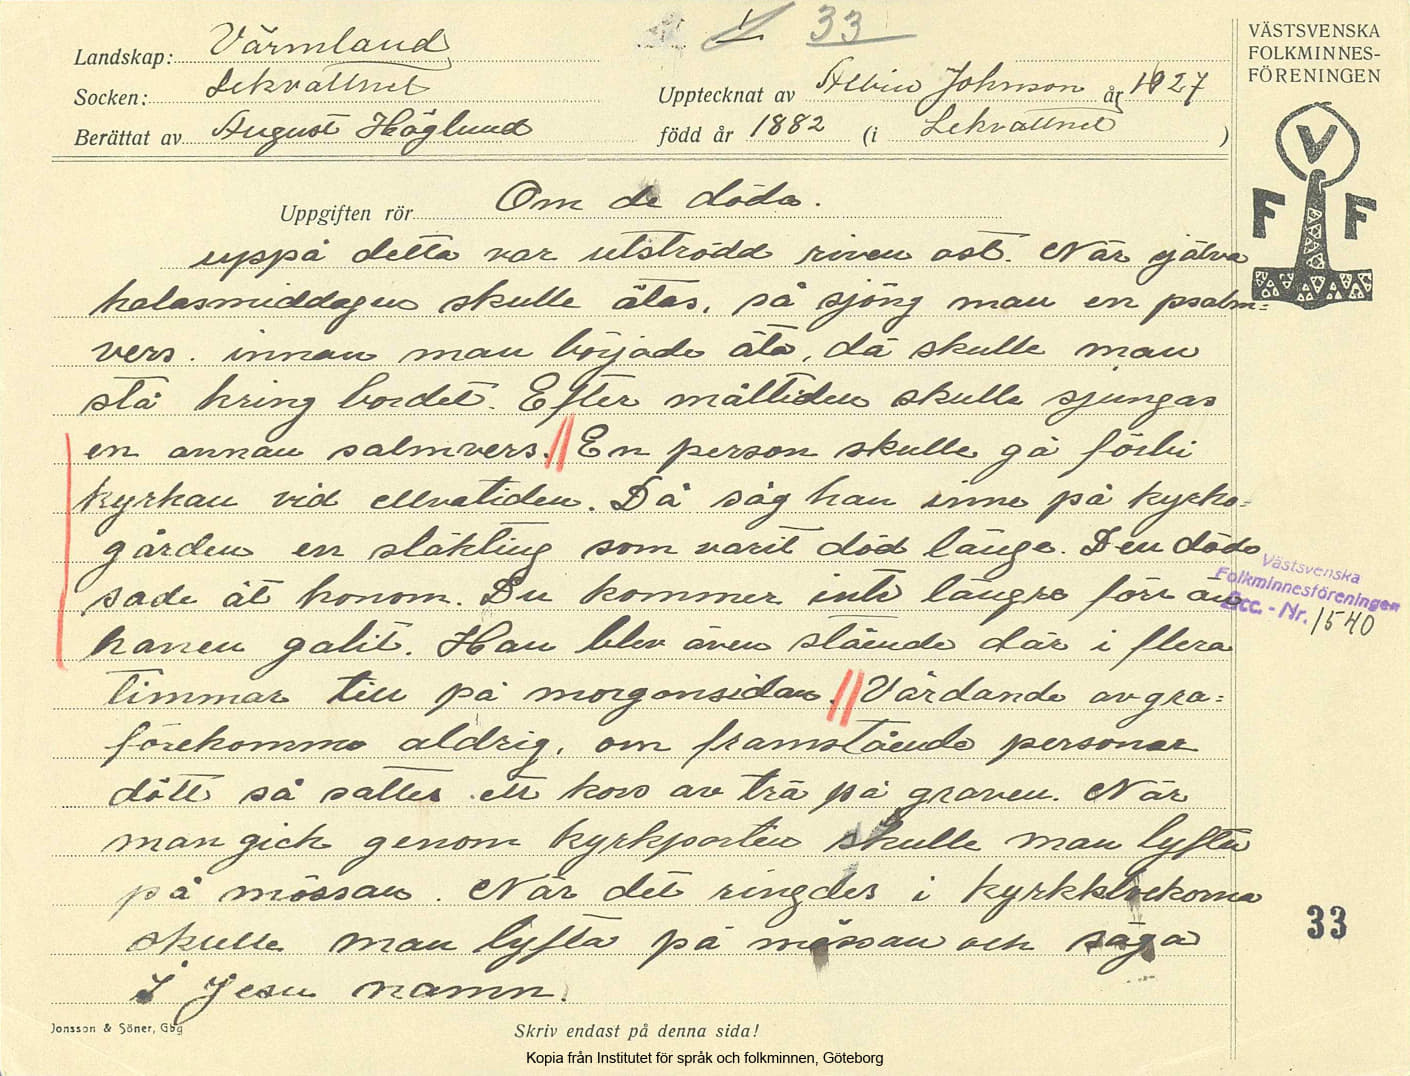 33
Landskap: Värmland
Socken: Lekvattnet
Upptecknat av Albin Johnson år 1927
Berättat av August Höglund
född år 1882 (i Lekvattnet )
VÄSTSVENSKA
FOLKMINNES-
FÖRENINGEN
V
F F
Uppgiften rör Om de döda.
uppå detta var utströdd riven ost. När själva
kalasmiddagen skulle ätas, så sjöng man en psalm=
vers. innan man började äta, då skulle man
stå kring bordet. Efter måltiden skulle sjungas
en annan salmvers. // En person skulle gå förbi
kyrkan vid ellvatiden. Då såg han inne på kyrko=
gården en släkting som varit död länge. Den döde
sade åt honom. Du kommer inte längre förr än
hanen galit. Han blev även stående där i flera
timmar till på morgonsidan. // Vårdande av gra=
förekomme aldrig, om framstående personer
dött så sattes ett kors av trä på graven. När
man gick genom kyrkporten skulle man lyfta
på mössan. När det ringdes i kyrkklockorna
skulle man lyfta på mössan och säga
I Jesu namn.
Västsvenska
Folkminnesföreningen
Acc. - Nr. 1540
33
Jonsson & Söner, Gbg
Skriv endast på denna sida!
Kopia från Institutet för språk och folkminnen, Göteborg